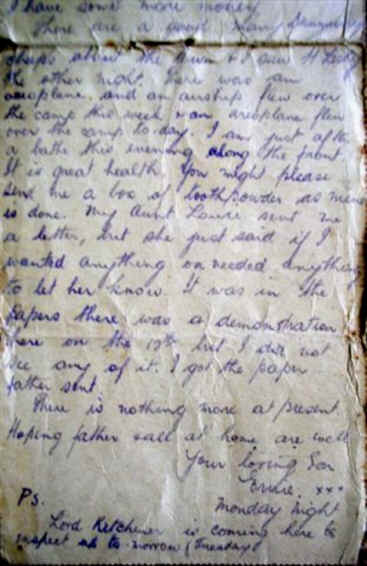 I have some more money
There are a good many
chaps about the town & I saw H
the other night. There was an
aeroplane and an airship flew over
the camp this week & an areoplane flew
over the camp to day. I am just after
a bath this evening along the front.
It is great health. You might please
send me a box of toothpowder as mine
is done. My Aunt Louie sent me
a letter, but she just said if I
wanted anything or needed anything
to let her know. It was in the
papers there was a demonstration
here on the 12th but I did not
see any of it. I got the paper
father sent.
There is nothing more at present.
Hoping father & all at home are well
Your loving Son
Ernie xxx
Monday night
Ps.
Lord Ketchener is coming here to
inspect us to morrow (Tuesday)